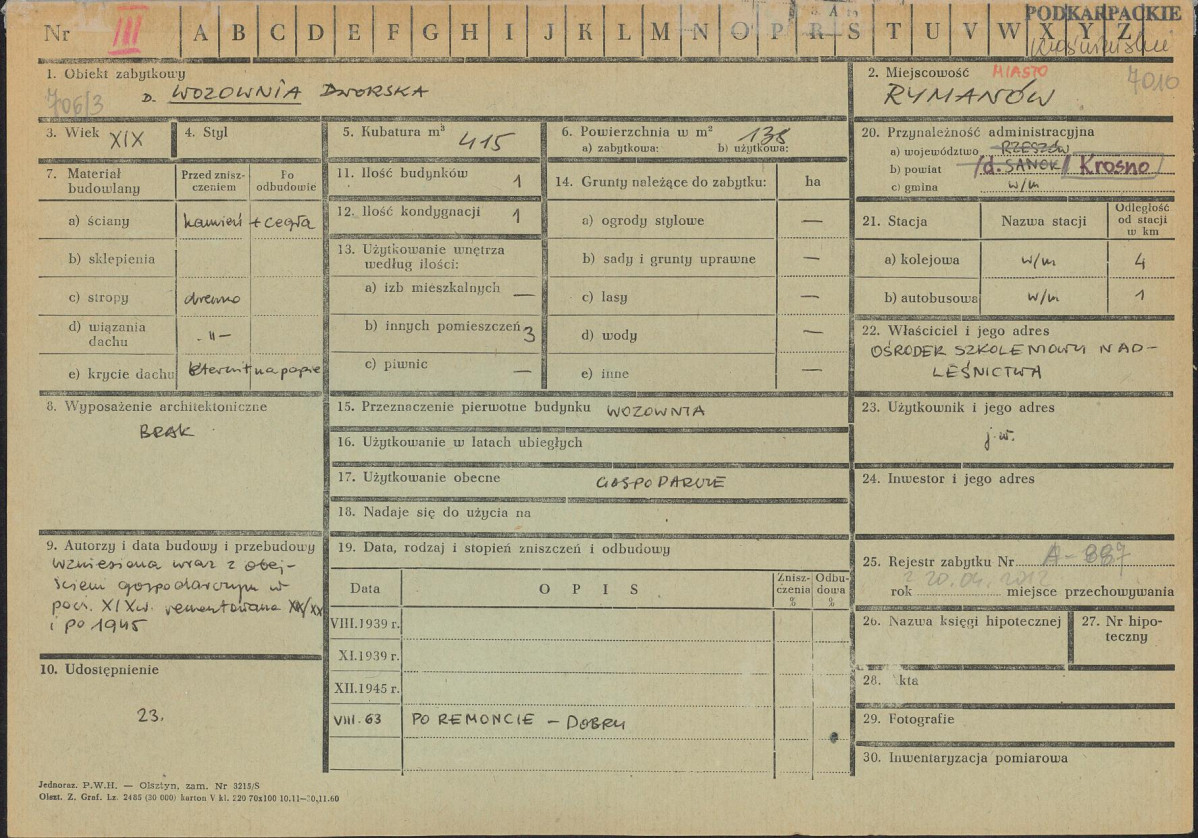 Nr III A B C D E F G H I J K L M N O P R S T U V W X Y Z
PODKARPACKIE
1. Obiekt zabytkowy
706/3
D. WOZOWNIA DWORSKA
2. Miejscowość MIASTO
7010
RYMANÓW
3. Wiek XIX
4. Styl
5. Kubatura m³ 415
6. Powierzchnia w m² 138
a) zabytkowa: b) użytkowa:
20. Przynależność administracyjna
a) województwo RZESZÓW
b) powiat /d. SANOK/ Krosno
c) gmina w/m
7. Materiał budowlany
Przed znisz-
czeniem
Po
odbudowie
a) ściany kamień + cegła
b) sklepienia
c) stropy drewno
d) wiązania
dachu -"-
e) krycie dachu eternit na papie
11. Ilość budynków 1
12. Ilość kondygnacji 1
13. Użytkowanie wnętrza
według ilości:
a) izb mieszkalnych —
b) innych pomieszczeń 3
c) piwnic —
14. Grunty należące do zabytku: ha
a) ogrody stylowe —
b) sady i grunty uprawne —
c) lasy —
d) wody —
e) inne —
21. Stacja
Nazwa stacji
Odległość
od stacji
w km
a) kolejowa w/m 4
b) autobusowa w/m 1
22. Właściciel i jego adres
OŚRODEK SZKOLENIOWY NAD-
LEŚNICTWA
8. Wyposażenie architektoniczne
BRAK
15. Przeznaczenie pierwotne budynku WOZOWNIA
16. Użytkowanie w latach ubiegłych
17. Użytkowanie obecne GOSPODARCZE
18. Nadaje się do użycia na
23. Użytkownik i jego adres
j.w.
24. Inwestor i jego adres
9. Autorzy i data budowy i przebudowy
Wzniesiona wraz z obej-
ściem gospodarczym w
pocz. XIXw. remontowana XIX/XX
i po 1945
19. Data, rodzaj i stopień zniszczeń i odbudowy
Data
O P I S
Znisz-
czenia
%
Odbu-
dowa
%
VIII.1939 r.
XI.1939 r.
XII.1945 r.
VIII.63 PO REMONCIE – DOBRY
25. Rejestr zabytku Nr A-887
z 20.04.2012
rok miejsce przechowywania
26. Nazwa księgi hipotecznej
27. Nr hipo-
teczny
10. Udostępnienie
23.
28. kta
29. Fotografie
30. Inwentaryzacja pomiarowa
Jednoraz. P.W.H. — Olsztyn, zam. Nr 3215/S
Olszt. Z. Graf. Lz. 2485 (30 000) karton V kl. 220 70x100 10.11—30,11.60